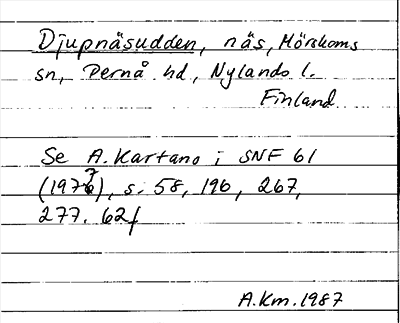 Djupnäsudden, näs, Mörskoms
sn, Pernå hd, Nylands l.
Finland
Se A. Kartano i SNF 61
(1977), s. 58, 196, 267,
277. 62f
A.Km. 1987